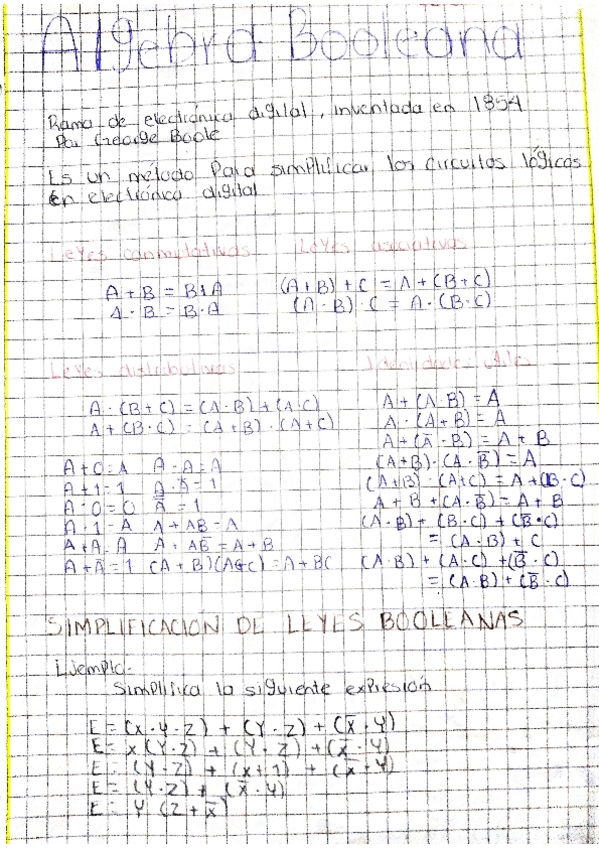 Algebra Booleana
Rama de electrónica digital, inventada en 1854
Por George Boole
Es un método Para simplificar los circuitos lógicos
en electrónica digital
Leyes conmutativas Leyes asociativas
A + B = B+A (A+B) + C = A + (B+C)
A · B = B·A (A·B) · C = A·(B·C)
Leyes distributivas Identidades
A·(B+C) = (A·B)+(A·C) A+(A·B) = A
A+(B·C) = (A+B)·(A+C) A·(A+B) = A
A+(Ā·B) = A+B
A+0=A A·A=A (A+B)·(A·B̅) = A
A+1=1 (A+B)·(A+C) = A+(B·C)
A·0=0 = 1 A+B+(A·B̅) = A+B
A·1=A A+AB=A (A·B)+(B·C)+(B̅·C)
A+A=A A+AB̅=A+B = (A·B)+C
A+Ā=1 (A+B)(A+C)=A+BC (A·B)+(A·C)+(B̅·C)
= (A·B)+(B̅·C)
SIMPLIFICACION DE LEYES BOOLEANAS
Ejemplo:
Simplifica la siguiente expresión
E=(X·Y·Z)+(Y·Z)+(X̅·Y)
E= X(Y·Z)+(Y·Z)+(X̅·Y)
E=(Y·Z)+(X+1)+(X̅+Y)
E=(Y·Z)+(X̅·Y)
E= Y(Z+X̅)